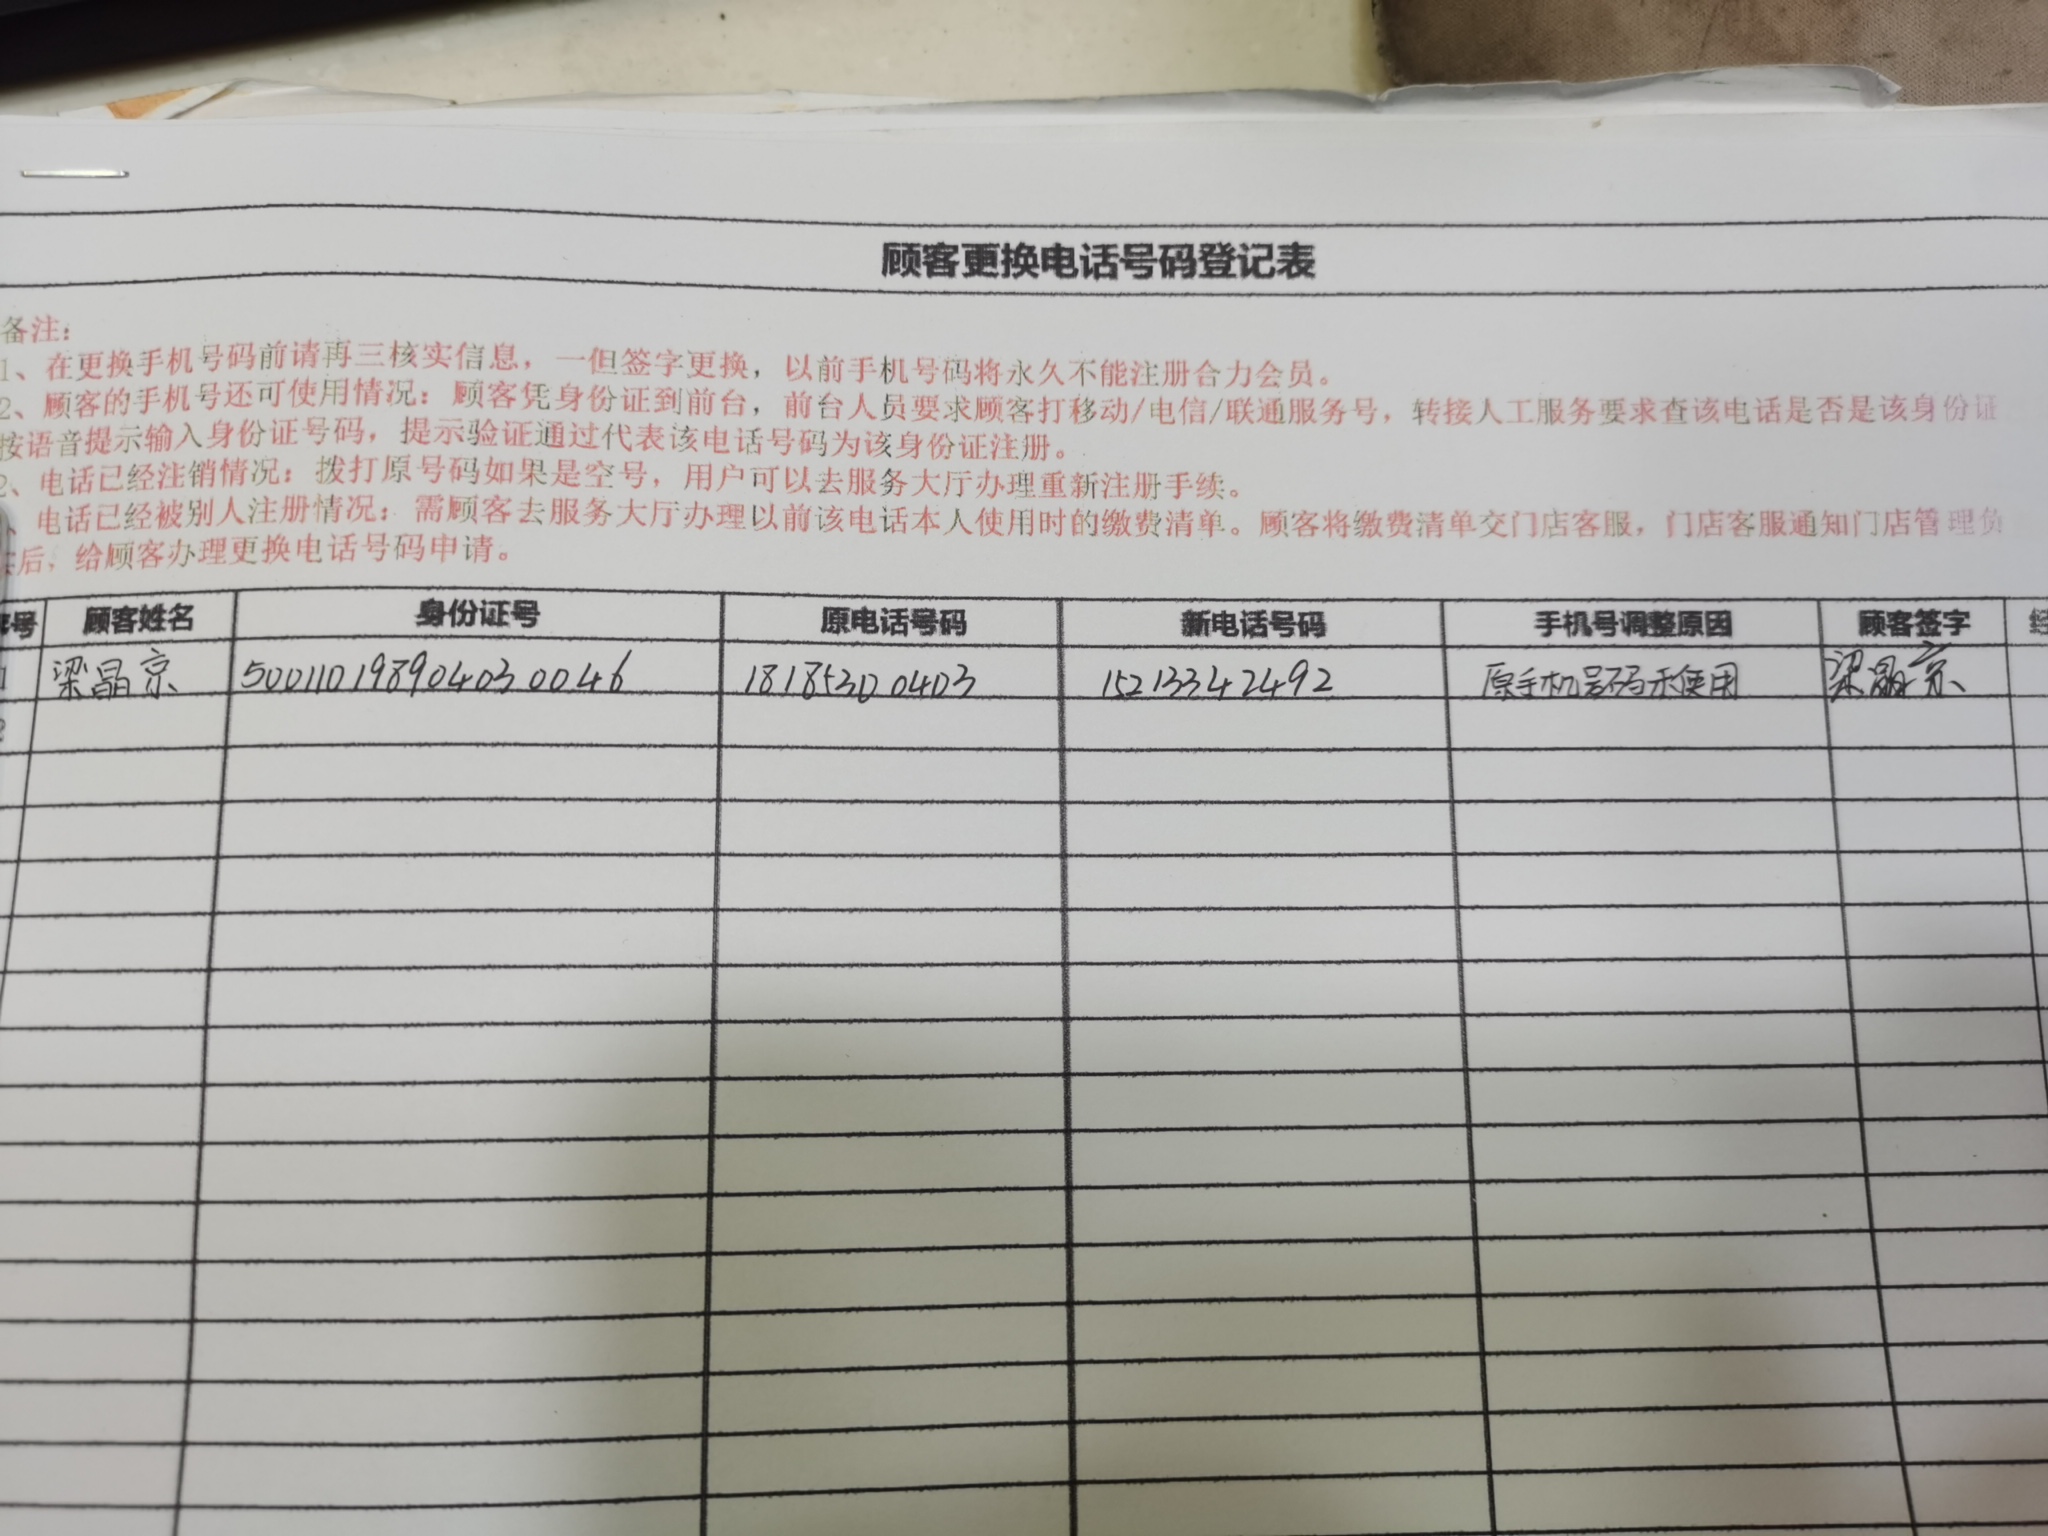 顾客更换电话号码登记表
备注：
1、在更换手机号码前请再三核实信息，一但签字更换，以前手机号码将永久不能注册合力会员。
2、顾客的手机号还可使用情况：顾客凭身份证到前台，前台人员要求顾客打移动/电信/联通服务号，转接人工服务要求查该电话是否是该身份证
按语音提示输入身份证号码，提示验证通过代表该电话号码为该身份证注册。
2、电话已经注销情况：拨打原号码如果是空号，用户可以去服务大厅办理重新注册手续。
、电话已经被别人注册情况：需顾客去服务大厅办理以前该电话本人使用时的缴费清单。顾客将缴费清单交门店客服，门店客服通知门店管理负
后，给顾客办理更换电话号码申请。
序号 顾客姓名 身份证号 原电话号码 新电话号码 手机号调整原因 顾客签字 经
1 梁晶京 500110198904030046 18185300403 15213342492 原手机号码未使用 梁晶京
2